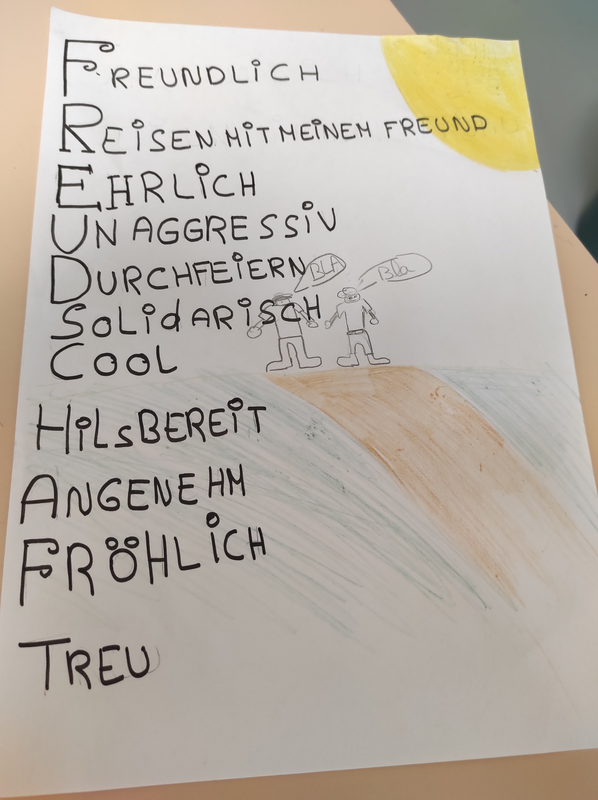 FREUNDLiCH
REiSEN MiT MEiNEM FREUND
EHRLiCH
UNAGGRESSiV
DURCHFEiERN
BLA
Bla
SOLidARiSCH
COOL
HiLSBEREiT
ANGENEHM
FRÖHLiCH
TREU